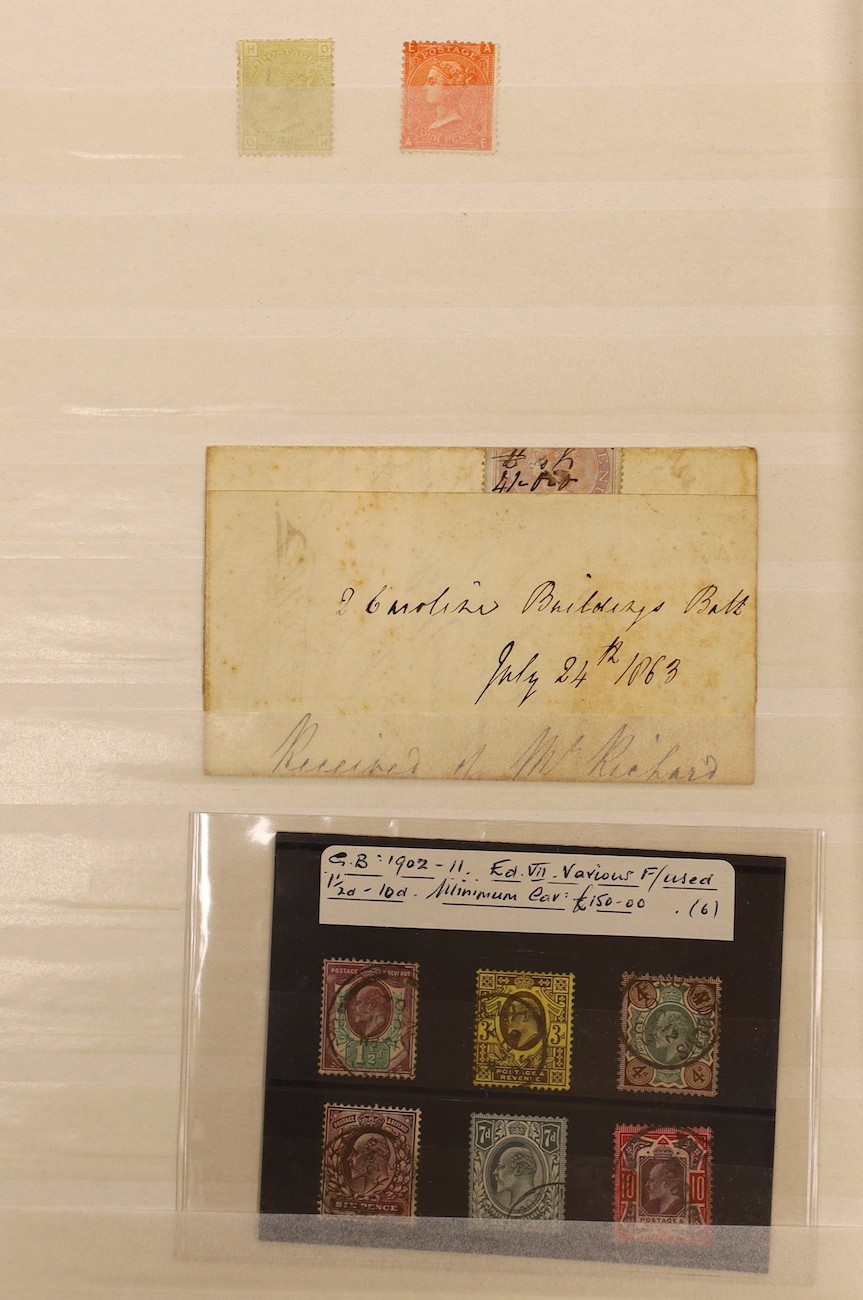 H O
POSTAGE
O H
E A
POSTAGE
FOUR PENCE
A E
2 Caroline Buildings Bath
July 24th 1863
Received of Mr Richard
G.B: 1902-11. Ed.VII. Various F/used
1½d-10d. Minimum Cat: £150-00 . (6)
POSTAGE REVENUE
1½d
3d 3d
POSTAGE &
REVENUE
4 4
4 4
POSTAGE & REVENUE
SIX PENCE
7d 7d
10 10
POSTAGE &